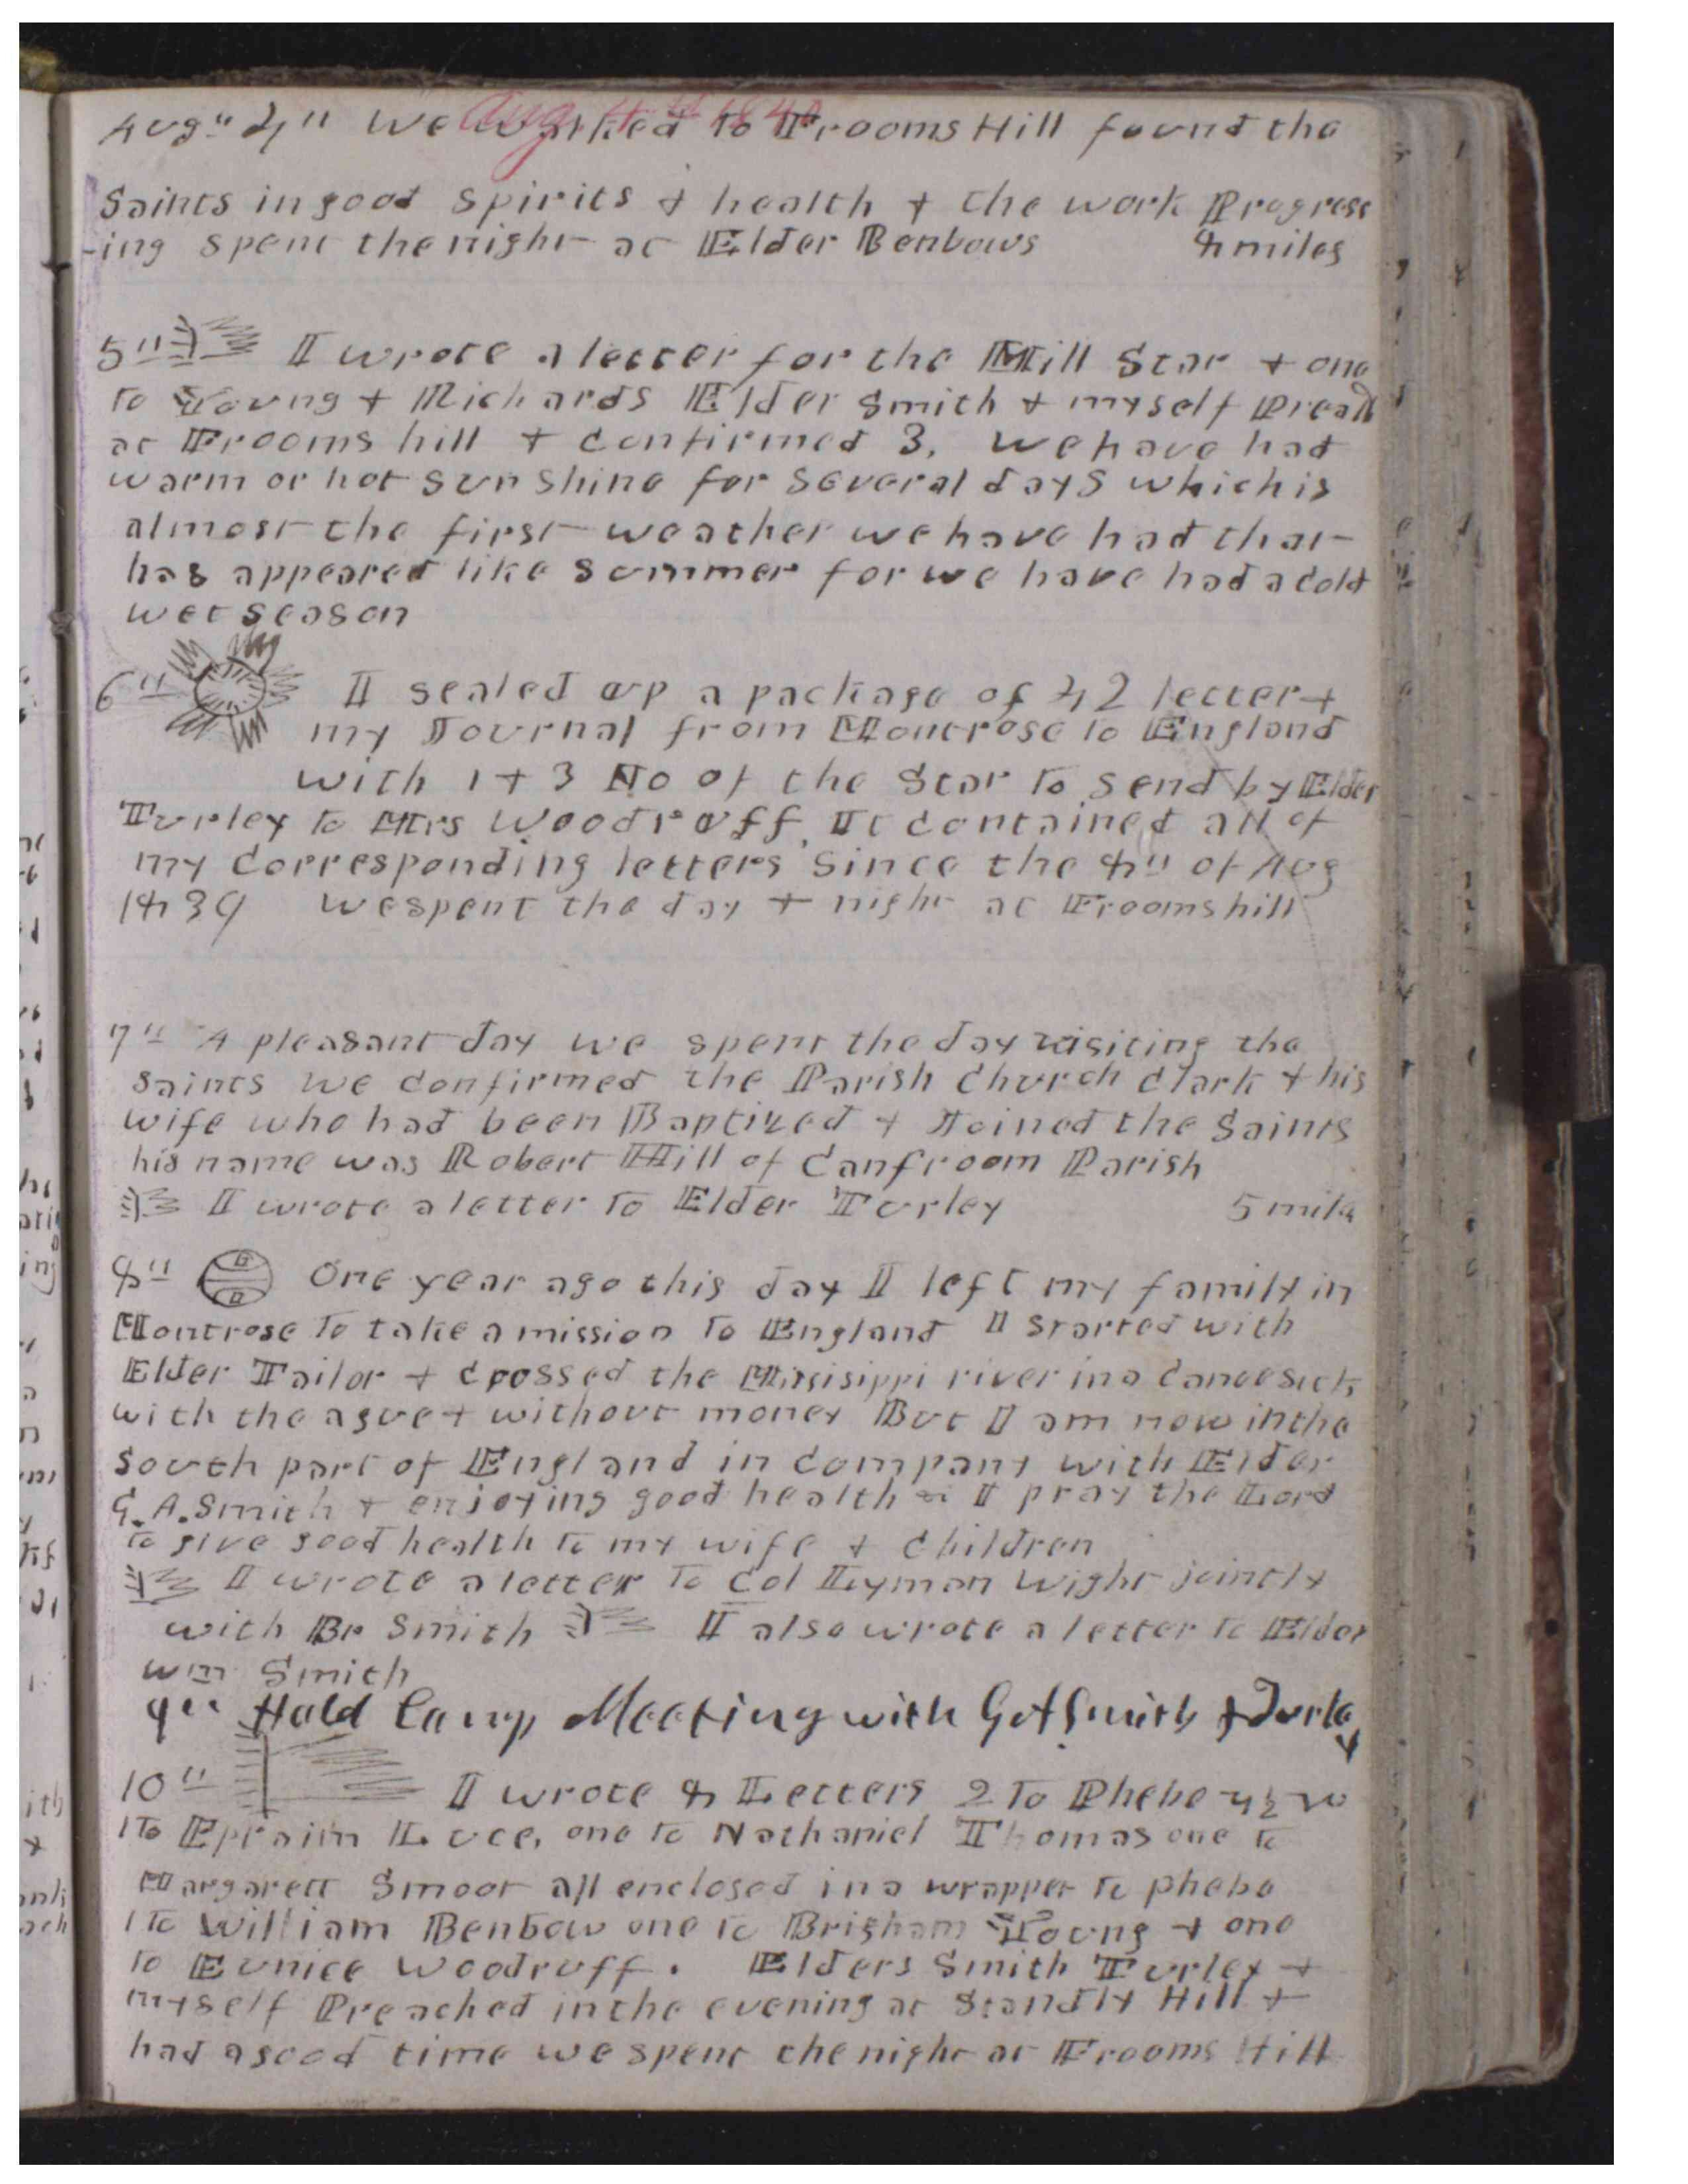 Aug 4th 1840
Aug" 4" We walked to Frooms Hill found the
Saints in good spirits & health & the work Progress
-ing spent the night at Elder Benbows 8 miles
5" I wrote a letter for the Mill Star & one
to Young & Richards Elder Smith & myself Preach
at Frooms hill & confirmed 3. we have had
warm or hot sun shine for several days which is
almost the first weather we have had that
has appeared like Summer for we have had a cold
wet season
6" I sealed up a package of 42 letter &
my Journal from Montrose to England
with 1 & 3 No of the Star to send by Elder
Turley to Mrs Woodruff It contained all of
my corresponding letters since the 8" of Aug
1839 we spent the day & night at Frooms hill
7" A pleasant day we spent the day visiting the
saints we confirmed the Parish Church Clark & his
wife who had been Baptized & Joined the Saints
his name was Robert Hill of Canfroom Parish
I wrote a letter to Elder Turley 5 mile
8" One year ago this day I left my family in
Montrose to take a mission to England I started with
Elder Tailor & crossed the Missisippi river in a canoe sick
with the ague & without money But I am now in the
south part of England in company with Elder
G. A. Smith & enjoying good health I pray the Lord
to give good health to my wife & children
I wrote a letter to Col Lyman Wight jointly
with Br Smith I also wrote a letter to Elder
Wm Smith
9" Held Camp Meeting with G A Smith & Turley
10" I wrote 8 Letters 2 To Phebe W
1 To Epraim Luce, one to Nathaniel Thomas one to
Margarett Smoot all enclosed in a wrapper to phebe
1 to William Benbow one to Brigham Young & one
to Eunice Woodruff. Elders Smith Turley &
myself Preached in the evening at Standly Hill &
had a good time we spent the night at Frooms Hill